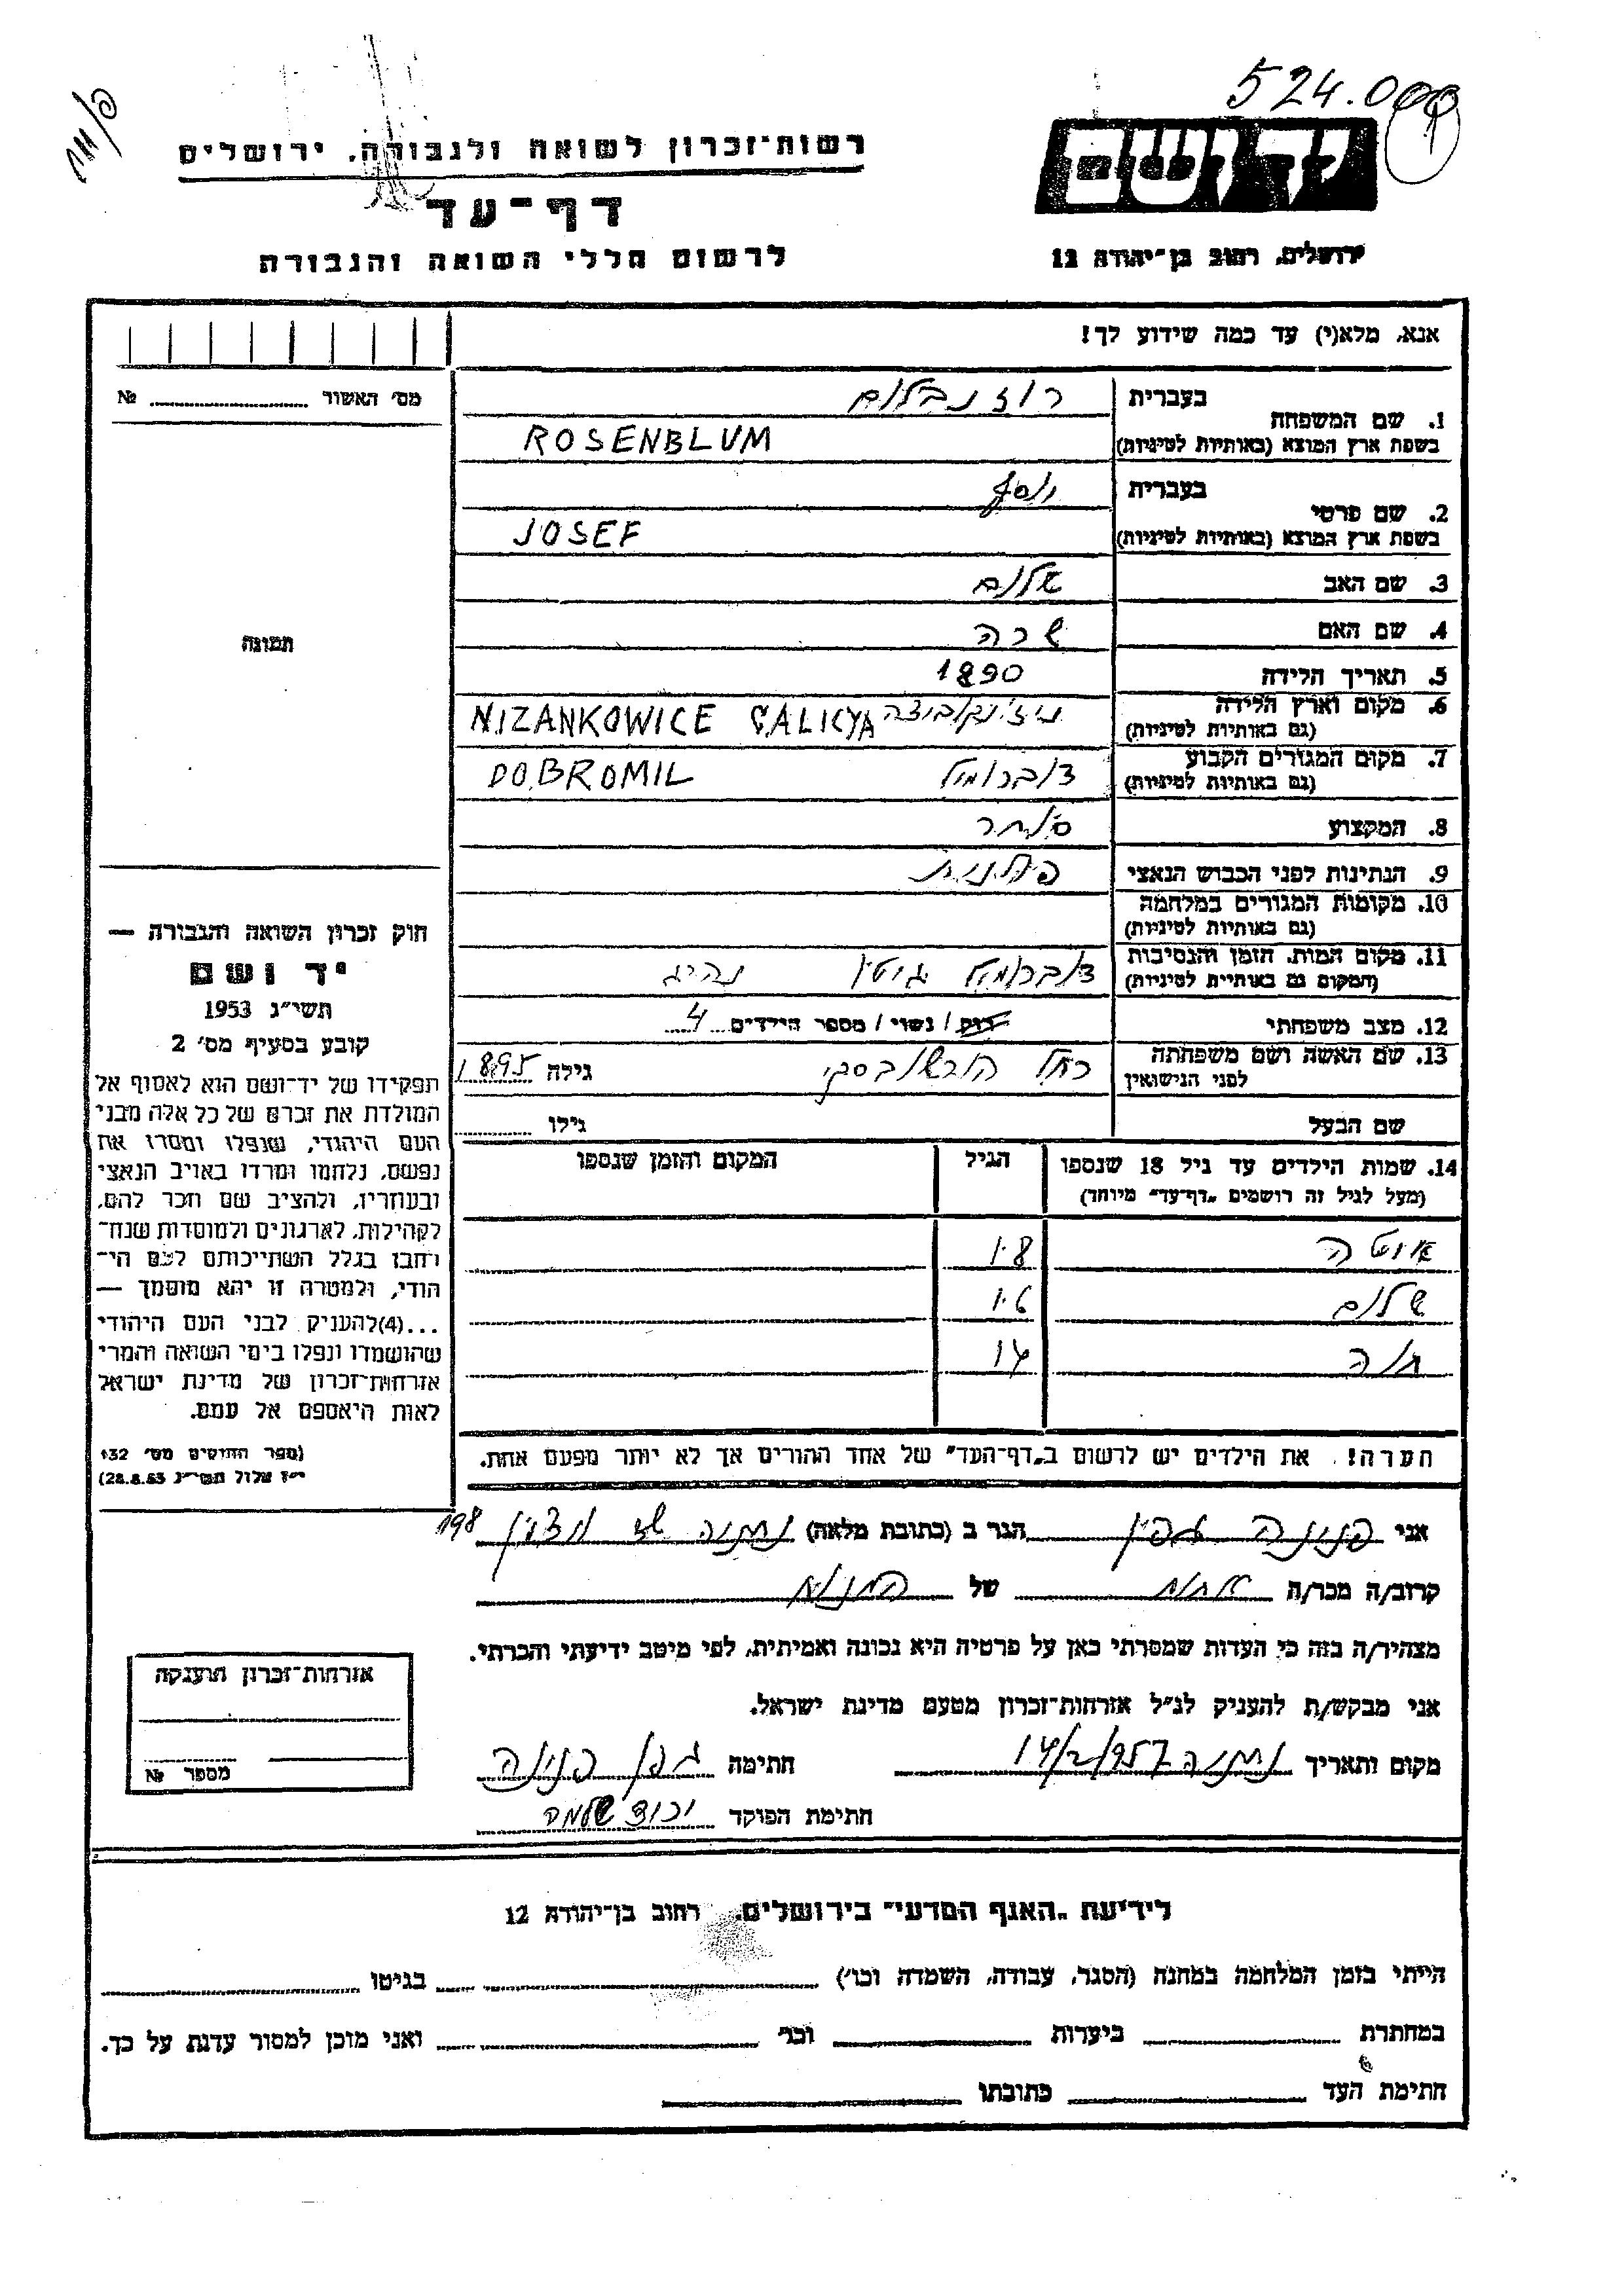 524.000
רשות־זכרון לשואה ולגבורה, ירושלים
יד ושם
דף־עד
לרשום חללי השואה והגבורה
ירושלים, רחוב בן־יהודה 12
אנא, מלא(י) עד כמה שידוע לך!
מס׳ האשור № 
1. שם המשפחה
בעברית רוזנבלום
בשפת ארץ המוצא (באותיות לטיניות) ROSENBLUM
2. שם פרטי
בעברית יוסף
בשפת ארץ המוצא (באותיות לטיניות) JOSEF
3. שם האב שלום
4. שם האם שרה
5. תאריך הלידה 1890
6. מקום וארץ הלידה NIZANKOWICE GALICYA
(גם באותיות לטיניות)
7. מקום המגורים הקבוע דוברומיל DOBROMIL
(גם באותיות לטיניות)
8. המקצוע סוחר
9. הנתינות לפני הכבוש הנאצי פולנית
10. מקומות המגורים במלחמה
(גם באותיות לטיניות)
11. מקום המות, הזמן והנסיבות דוברומיל גיטו נהרג
(המקום גם באותיות לטיניות)
12. מצב משפחתי רווק / נשוי / מספר הילדים 4
13. שם האשה ושם משפחתה רחל גילה 1895
לפני הנישואין
שם הבעל גילו
14. שמות הילדים עד גיל 18 שנספו הגיל המקום והזמן שנספו
(מעל לגיל זה רושמים „דף־עד״ מיוחד)
18
שלום 16
חוה 14
הערה! את הילדים יש לרשום ב„דף־העד״ של אחד ההורים אך לא יותר מפעם אחת.
תמונה
חוק זכרון השואה והגבורה —
יד ושם
תשי״ג 1953
קובע בסעיף מס׳ 2
תפקידו של יד־ושם הוא לאסוף אל
המולדת את זכרם של כל אלה מבני
העם היהודי, שנפלו ומסרו את
נפשם, נלחמו ומרדו באויב הנאצי
ובעוזריו, ולהציב שם וזכר להם,
לקהילות, לארגונים ולמוסדות שנח־
רבו בגלל השתייכותם לעם הי־
הודי, ולמטרה זו יהא מוסמך —
...(4)להעניק לבני העם היהודי
שהושמדו ונפלו בימי השואה והמרי
אזרחות־זכרון של מדינת ישראל
לאות היאספם אל עמם.
(ספר החוקים מס׳ 132
י״ז אלול תשי״ג 28.8.53)
אני פנינה גפן הגר ב (כתובת מלאה) נתניה 198
קרוב/ה מכר/ה אחות של המנוח
מצהיר/ה בזה כי העדות שמסרתי כאן על פרטיה היא נכונה ואמיתית, לפי מיטב ידיעתי והכרתי.
אני מבקש/ת להעניק לנ״ל אזרחות־זכרון מטעם מדינת ישראל.
מקום ותאריך נתניה 14/2/957 חתימה גפן פנינה
חתימת הפוקד שלמה
אזרחות־זכרון הוענקה
מספר №
לידיעת „האגף המדעי״ בירושלים, רחוב בן־יהודה 12
הייתי בזמן המלחמה במחנה (הסגר, עבודה, השמדה וכו׳) בגיטו
במחתרת ביערות וכו׳ ואני מוכן למסור עדות על כך.
חתימת העד כתובתו